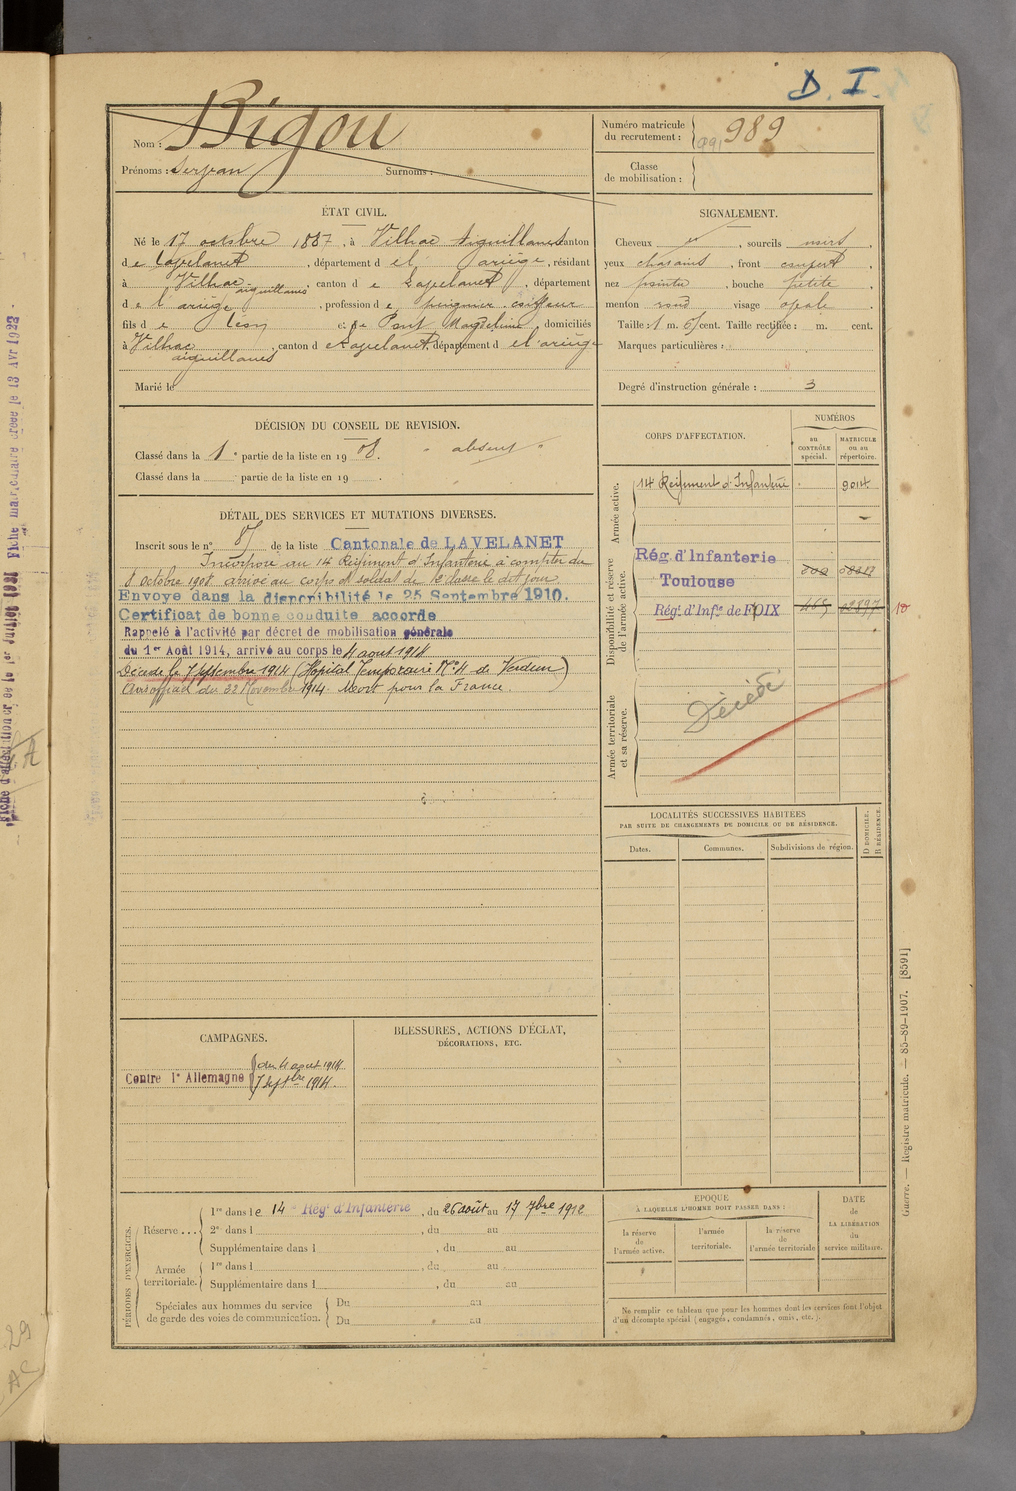 D. I.
Nom : Bigou
Prénoms : Surnoms :
Numéro matricule
du recrutement : 989
991
Classe
de mobilisation :
ÉTAT CIVIL.
Né le 17 octobre 1887, à Vilhac Aiguillanes canton
de Lavelanet, département de l'ariège, résidant
à Vilhac aiguillanes, canton de Lavelanet, département
de l'ariège, profession de coiffeur
fils de et de Pont Magdeleine, domiciliés
à Vilhac aiguillanes, canton de Lavelanet, département de l'ariège
Marié le
SIGNALEMENT.
Cheveux et, sourcils noirs,
yeux chatains, front couvert,
nez pointu, bouche petite,
menton rond visage ovale
Taille : 1 m. cent. Taille rectifiée : m. cent.
Marques particulières :
Degré d'instruction générale : 3
DÉCISION DU CONSEIL DE REVISION.
Classé dans la 1e partie de la liste en 1908. "absent"
Classé dans la partie de la liste en 19 .
DÉTAIL DES SERVICES ET MUTATIONS DIVERSES.
Inscrit sous le n° de la liste Cantonale de LAVELANET
Incorporé au 14 Régiment d'Infanterie à compter du
8 octobre 1908 arrivé au corps et soldat de 2e classe le dit jour
Envoyé dans la disponibilité le 25 Septembre 1910.
Certificat de bonne conduite accordé
Rappelé à l'activité par décret de mobilisation générale
du 1er Août 1914, arrivé au corps le 4 aout 1914
Décédé le 7 Septembre 1914 (Hopital Temporaire N° 4 de Verdun)
Avis officiel du 22 Novembre 1914. Mort pour la France.
CORPS D'AFFECTATION.
NUMÉROS
au
CONTRÔLE
spécial.
MATRICULE
ou au
répertoire.
Armée active.
14 Régiment d'Infanterie 9014
Disponibilité et réserve
de l'armée active.
Rég. d'Infanterie
Toulouse
Régt. d'Infie de FOIX 465 10
Armée territoriale
et sa réserve.
Décédé
LOCALITÉS SUCCESSIVES HABITÉES
PAR SUITE DE CHANGEMENTS DE DOMICILE OU DE RÉSIDENCE.
Dates.
Communes.
Subdivisions de région.
D DOMICILE.
R RÉSIDENCE.
CAMPAGNES.
Contre l'Allemagne du 4 aout 1914
7 septbre 1914.
BLESSURES, ACTIONS D'ÉCLAT,
DÉCORATIONS, ETC.
PÉRIODES D'EXERCICES.
Réserve ...
1re dans le 14e Régt d'Infanterie, du 26 août au 17 7bre 1912
2e dans l , du au
Supplémentaire dans l , du au
Armée
territoriale.
1re dans l , du au
Supplémentaire dans l , du au
Spéciales aux hommes du service
de garde des voies de communication.
Du au
Du au
EPOQUE
À LAQUELLE L'HOMME DOIT PASSER DANS :
la réserve
de
l'armée active.
l'armée
territoriale.
la réserve
de
l'armée territoriale
DATE
de
LA LIBÉRATION
du
service militaire.
Ne remplir ce tableau que pour les hommes dont les services font l'objet
d'un décompte spécial (engagés, condamnés, omis, etc.).
Guerre. — Registre matricule. — 85-89-1907. [8591]
29
AC